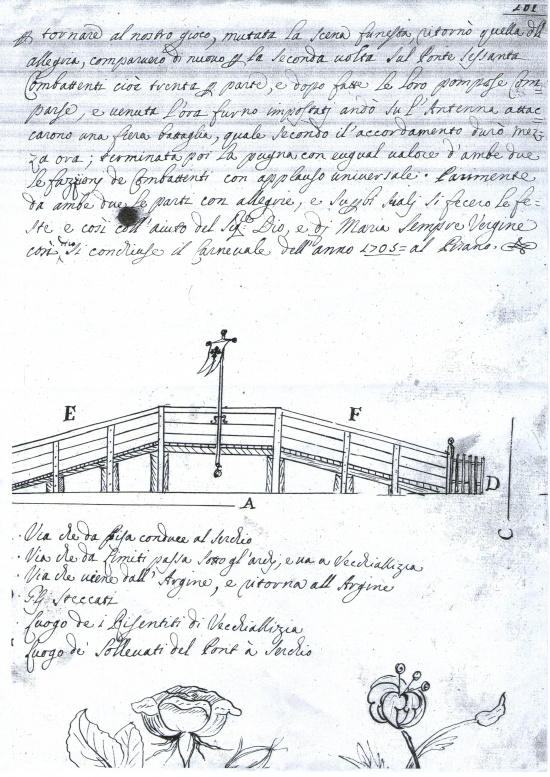 101
tornare al nostro gioco, mutata la scena funesta ritornò quella d'
allegria, comparvero di nuovo la seconda volta sul Ponte sessanta
Combattenti cioè trenta parte, e dopo fatte le loro pompose com
parse, e venuta l'ora furno impostati andò su l'Antenna attac=
carono una fiera battaglia, quale secondo il accordamento durò mez=
za ora; terminata poi la pugna con eugual valore d'ambe due
le fazzioni de Combattenti con applauso universale.
da ambe due le parti con allegrie, e si fecero le fe=
ste e così coll'aiuto del Sig.e Dio, e di Maria Sempre Vergine
così si concluse il Carnevale dell'anno 1705= al
E
F
D
A
C
Via che da Pisa conduce al Serchio
Via che da Limiti passa sotto gl'archi, e va a Vecchiallizia
Via che viene dall'Argine, e ritorna all Argine
Gli Steccati
Luogo de i Risentiti di Vecchiallizia
Luogo de' Sollevati del Pont à Serchio